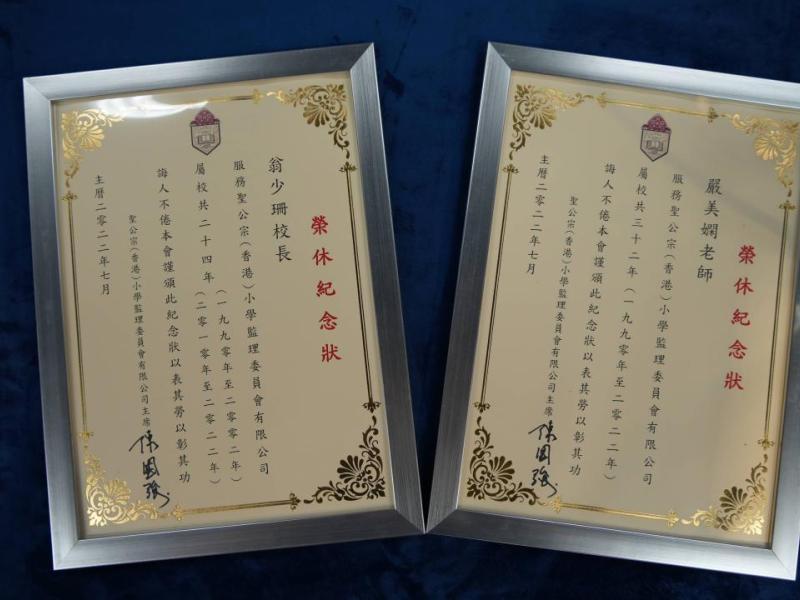 榮休紀念狀
翁少珊校長
服務聖公宗(香港)小學監理委員會有限公司
屬校共二十四年(一九九零年至二零零二年)
(二零一零年至二零二二年)
誨人不倦本會謹頒此紀念狀以表其勞以彰其功
聖公宗(香港)小學監理委員會有限公司主席 陳國強
主曆二零二二年七月
榮休紀念狀
嚴美嫻老師
服務聖公宗(香港)小學監理委員會有限公司
屬校共三十二年(一九九零年至二零二二年)
誨人不倦本會謹頒此紀念狀以表其勞以彰其功
聖公宗(香港)小學監理委員會有限公司主席 陳國強
主曆二零二二年七月